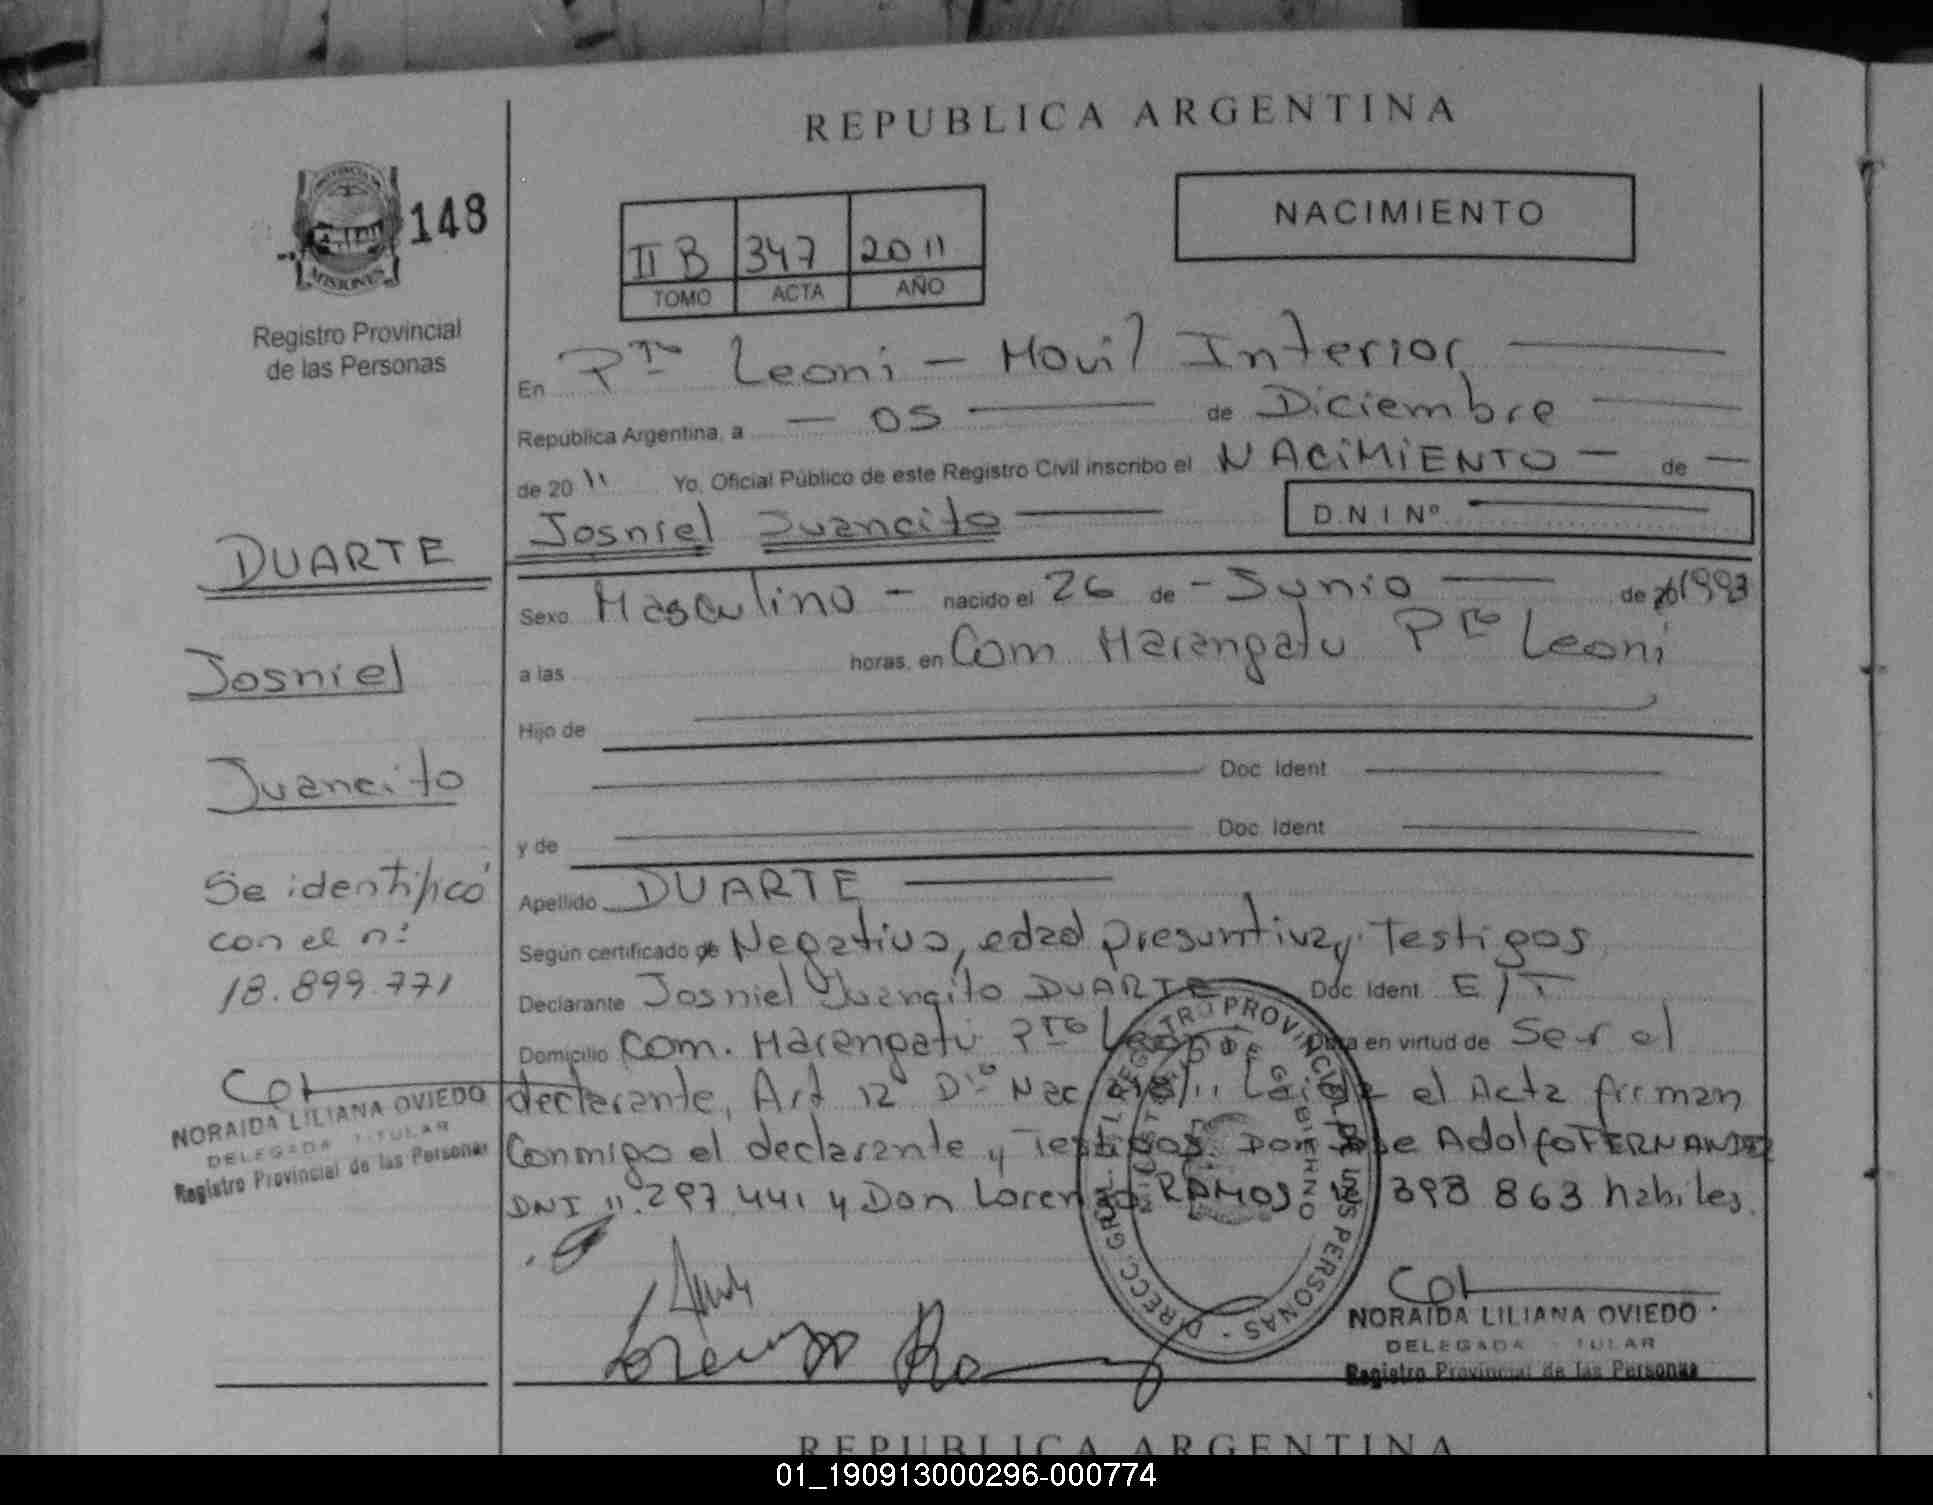 REPUBLICA ARGENTINA
PROVINCIA DE
MISIONES
148
Registro Provincial
de las Personas
NACIMIENTO
II B 347 2011
TOMO ACTA AÑO
En Pto Leoni - Movil Interior
República Argentina, a - 05 - de Diciembre
de 2011 Yo, Oficial Público de este Registro Civil inscribo el NACIMIENTO - de -
Josniel Juancito
D.N.I Nº
Sexo Masculino - nacido el 26 de - Junio de 1993
a las horas, en Com Marangatu Pto Leoni
Hijo de
Doc. Ident
y de Doc. Ident
Apellido DUARTE
Según certificado de Negativo, edad presuntiva y Testigos
Declarante Josniel Juancito DUARTE Doc. Ident. E/T
Domicilio Com. Marangatu Pto Leoni Obra en virtud de Ser el
declarante, Art 12 Dto Nac Leida el Acta firman
Conmigo el declarante y Testigos Don Jose Adolfo FERNANDEZ
DNI 11.297.441 y Don Lorenzo RAMOS 398 863 habiles.
DUARTE
Josniel
Juancito
Se identificó
con el nº
18.899.771
NORAIDA LILIANA OVIEDO
DELEGADA TITULAR
Registro Provincial de las Personas
Lorenzo Ramos
DIRECC. GRAL. REGISTRO PROVINCIAL DE LAS PERSONAS
NORAIDA LILIANA OVIEDO
DELEGADA TITULAR
Registro Provincial de las Personas
REPUBLICA ARGENTINA
01_190913000296-000774